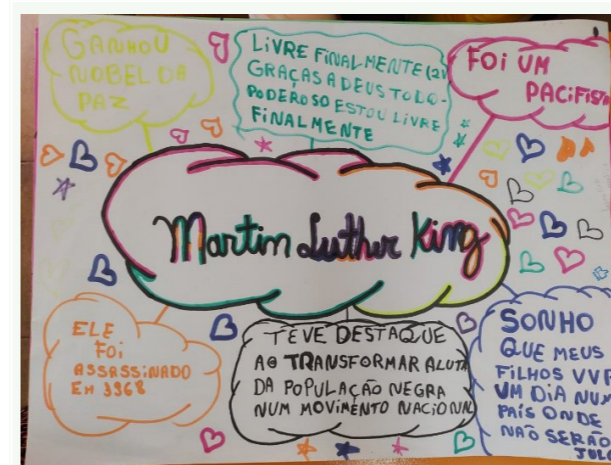 GANHOU
NOBEL DA
PAZ
LIVRE FINALMENTE (2V
GRAÇAS A DEUS TODO-
PODEROSO ESTOU LIVRE
FINALMENTE
FOI UM
PACIFIST
Martin Luther King
ELE
FOI
ASSASSINADO
EM 1968
TEVE DESTAQUE
AO TRANSFORMAR A LUTA
DA POPULAÇÃO NEGRA
NUM MOVIMENTO NACIONAL
SONHO
QUE MEUS
FILHOS VVE
UM DIA NUM
PAÍS ONDE
NÃO SERÃO
JUL